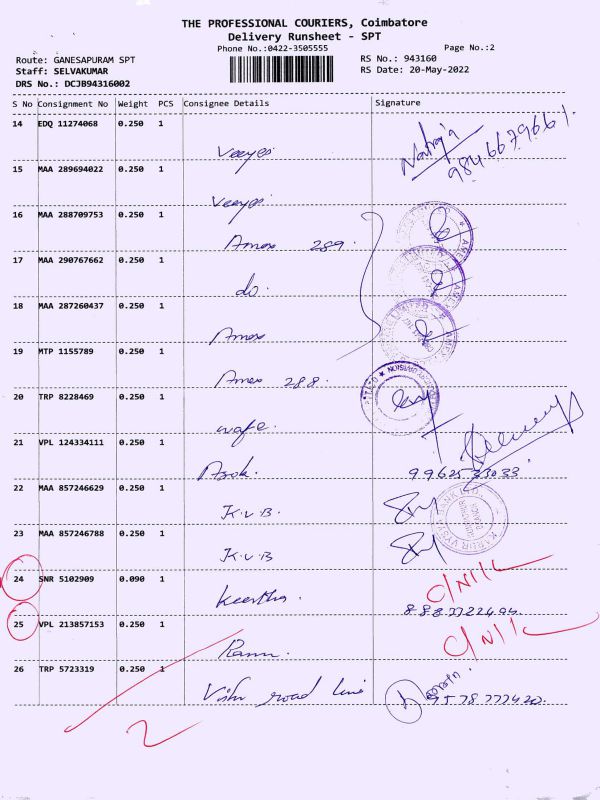 THE PROFESSIONAL COURIERS, Coimbatore
Delivery Runsheet - SPT
Phone No.:0422-3505555
Page No.:2
Route: GANESAPURAM SPT
RS No.: 943160
Staff: SELVAKUMAR
RS Date: 20-May-2022
DRS No.: DCJB94316002
S No Consignment No Weight PCS Consignee Details Signature
14 EDQ 11274068 0.250 1
Veeyes
15 MAA 289694022 0.250 1
Veeyes
16 MAA 288709753 0.250 1
Amex 289
17 MAA 290767662 0.250 1
do
18 MAA 287260437 0.250 1
Amex
19 MTP 1155789 0.250 1
Amex 288
20 TRP 8228469 0.250 1
21 VPL 124334111 0.250 1
Asok
22 MAA 857246629 0.250 1
K.V.B
23 MAA 857246788 0.250 1
K.V.B
24 SNR 5102909 0.090 1
Keertha
25 VPL 213857153 0.250 1
26 TRP 5723319 0.250 1
road line
9578777420
2